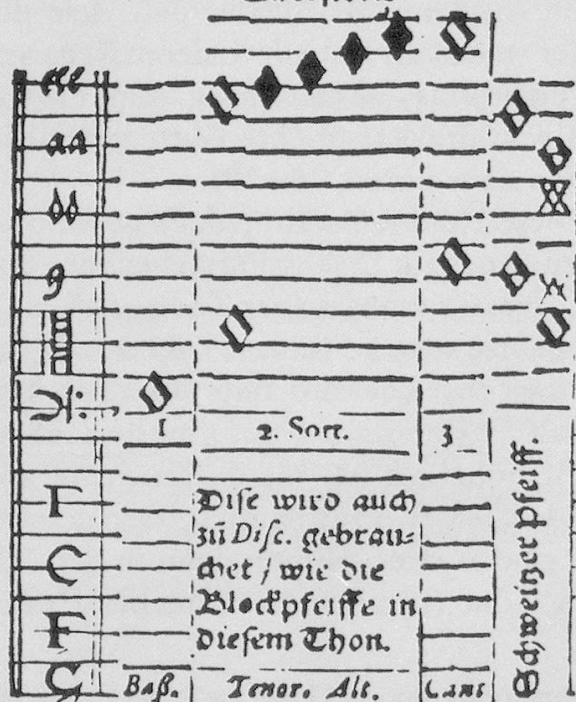 ee
aa
dd
g
1
2. Sort.
3
Γ
C
F
Dise wird auch
zů Disc. gebrau=
chet / wie die
Blockpfeiffe in
diesem Thon.
Baß.
Tenor. Alt.
Cant
Schweitzer Pfeiff.